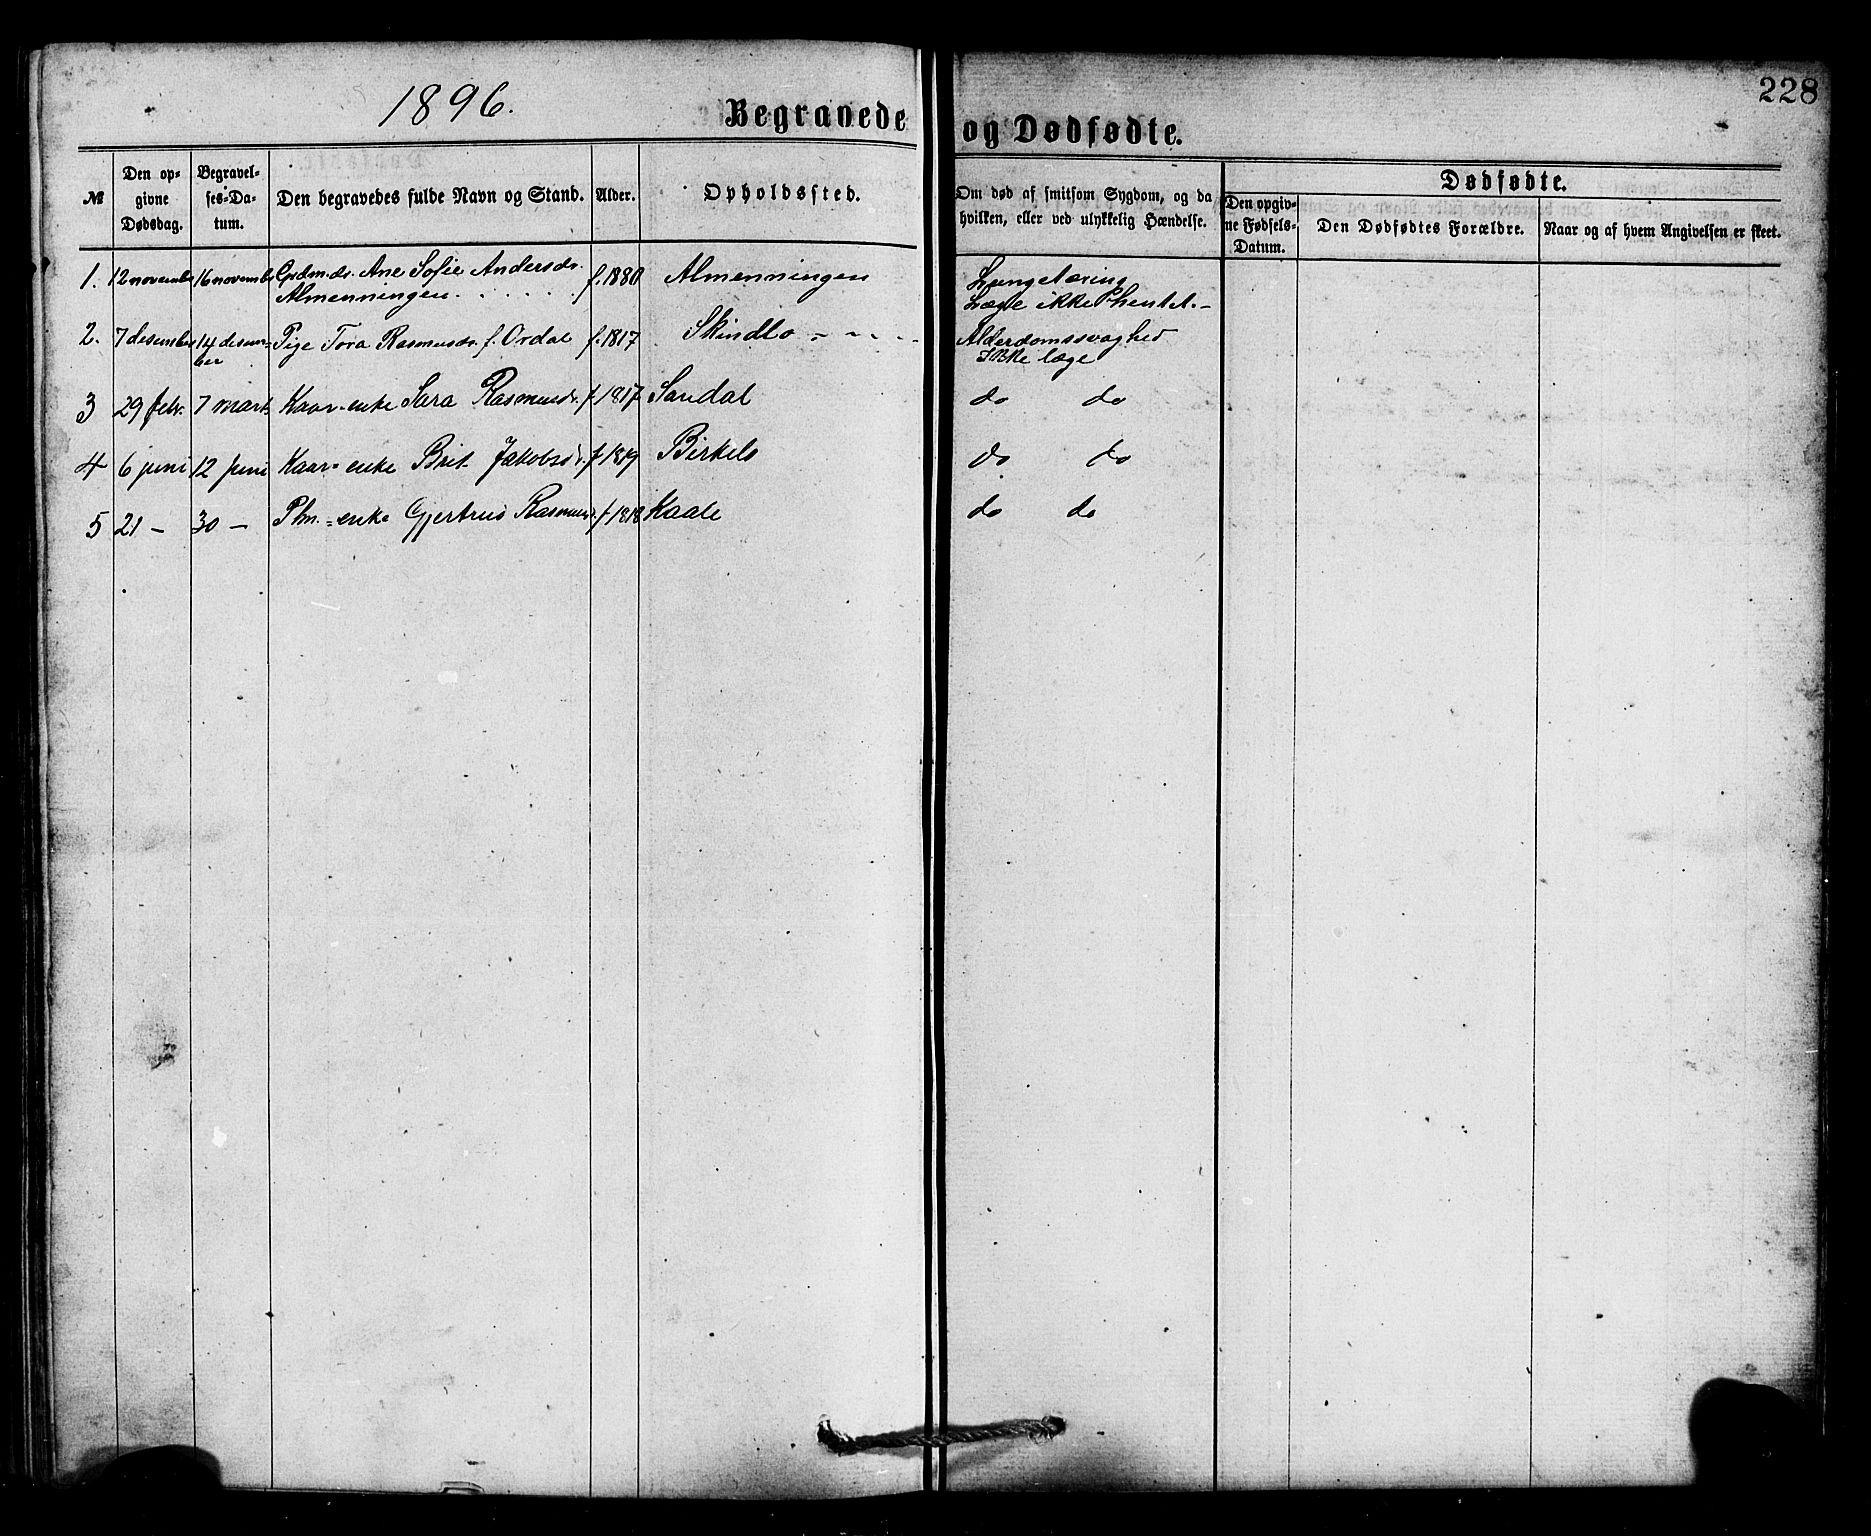 1896.
Begravede og Dødfødte.
228
№
Den opgivne Dødsdag.
Begravelses-Datum.
Den begravedes fulde Navn og Stand.
Alder.
Opholdssted.
Om død af smitsom Sygdom, og da hvilken, eller ved ulykkelig Hændelse.
Dødfødte.
Den opgivne Fødsels-Datum.
Den Dødfødtes Forældre.
Naar og af hvem Angivelsen er skeet.
1. 12 november 16 november Grdm.dr. Ane Sofie Andersdr. f. 1880 Almenningen Lungetæring
Almenningen . . . . . . Læge ikke hentet. –
2. 7 desember 14 desem- Pige Tora Rasmusdr. f. Ordal f. 1817 Skindlo - - - - Alderdomssvaghed
ber Ikke læge
3 29 febr. 7 mart. Kaar-enke Sara Rasmusdr. f 1817 Sandal do do
4 6 juni 12 juni Kaar-enke Brit Jakobsdr. f 1819 Birkelo do do
5 21 – 30 – Plm.-enke Gjertrud Rasmusdr. f 1818 Kaale do do